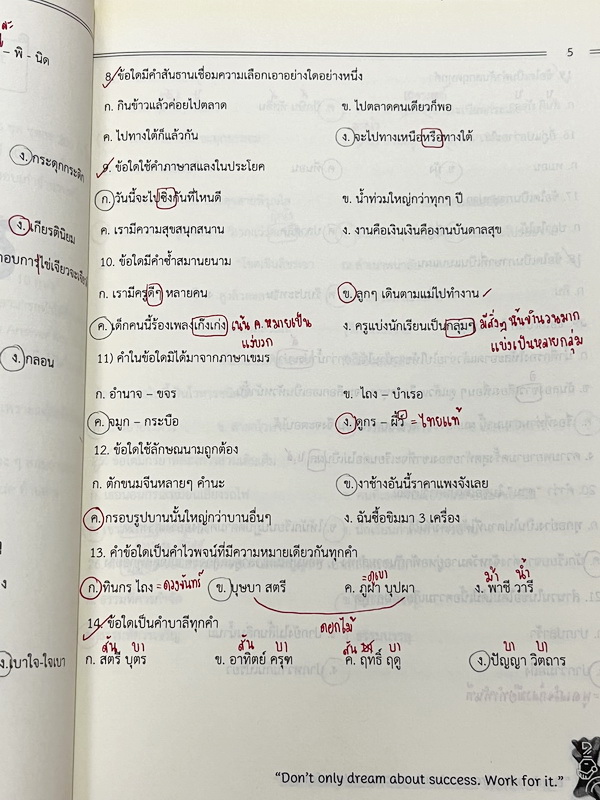 – พิ - นิด
5
8. ข้อใดมีคำสันธานเชื่อมความเลือกเอาอย่างใดอย่างหนึ่ง
ก. กินข้าวแล้วค่อยไปตลาด ข. ไปตลาดคนเดียวก็พอ
ค. ไปทางใต้ก็แล้วกัน ง. จะไปทางเหนือหรือทางใต้
9. ข้อใดใช้คำภาษาสแลงในประโยค
ก. วันนี้จะไปซิ่งกันที่ไหนดี ข. น้ำท่วมใหญ่กว่าทุกๆ ปี
ค. เรามีความสุขสนุกสนาน ง. งานคือเงินเงินคืองานบันดาลสุข
10. ข้อใดมีคำซ้ำสมานยนาม
ก. เรามีครูดีๆ หลายคน ข. ลูกๆ เดินตามแม่ไปทำงาน
ค. เด็กคนนี้ร้องเพลงเก๊งเก่ง เน้น ค.หมายเป็น ง. ครูแบ่งนักเรียนเป็นกลุ่มๆ
แบ่งเป็นหลายกลุ่ม
11) คำในข้อใดมิได้มาจากภาษาเขมร
ก. อำนาจ – ขจร ข. ไถง – บำเรอ
ค. จมูก – กระบือ ง. ดูกร – ผิว์ = ไทยแท้
12. ข้อใดใช้ลักษณนามถูกต้อง
ก. ตักขนมจีนหลายๆ คำนะ ข. งาช้างอันนี้ราคาแพงจังเลย
ค. กรอบรูปบานนั้นใหญ่กว่าบานอื่นๆ ง. ฉันซื้อขิมมา 3 เครื่อง
13. คำข้อใดเป็นคำไวพจน์ที่มีความหมายเดียวกันทุกคำ
ภูเขา ม้า น้ำ
ก. ทินกร ไถง = ดวงจันทร์ ข. บุษบา สตรี ค. ภูผา บุปผา ง. พาชี วารี
ดอกไม้
14. ข้อใดเป็นคำบาลีทุกคำ
สัน บา สัน บา สัน บา บา บา
ก. สตรี บุตร ข. อาทิตย์ ครุฑ ค. ฤทธิ์ ฤดู ง. ปัญญา วิตถาร
ง. กระดุกกระดิก
ง. เกียรตินิยม
ง. กลอน
ง. เบาใจ-ใจเบา
"Don't only dream about success. Work for it."